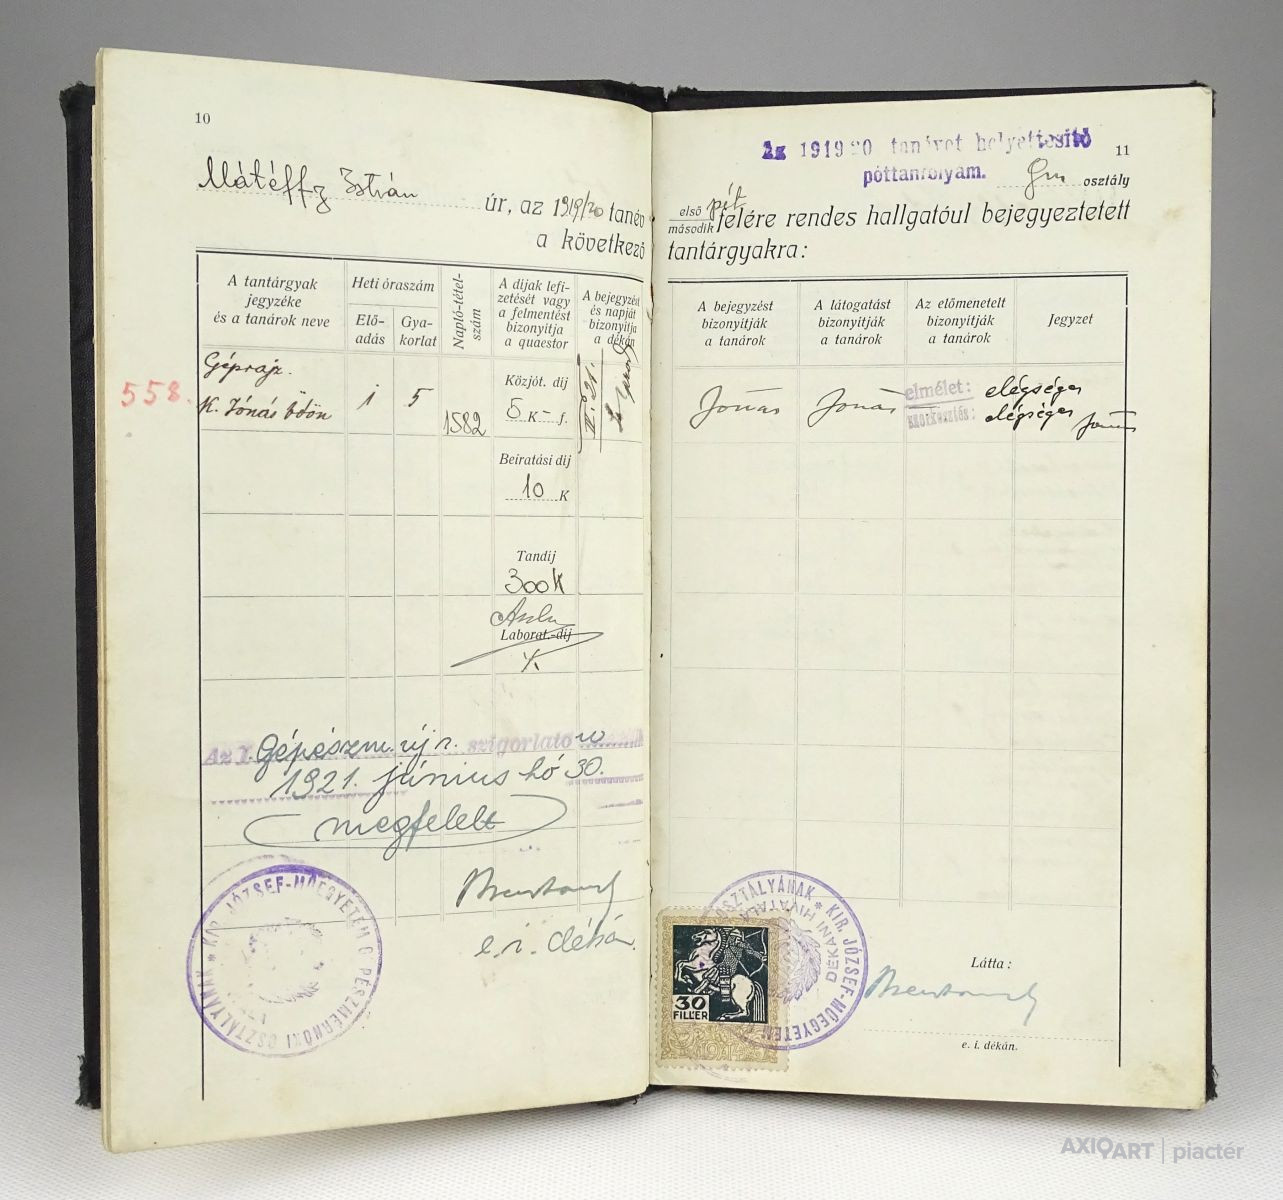 10
Mátéffy István úr, az 1919/20 tanév
a következő
A tantárgyak
jegyzéke
és a tanárok neve
Heti óraszám
Elő-
adás
Gya-
korlat
Napló-tétel-
szám
A díjak lefi-
zetését vagy
a felmentést
bizonyítja
a quaestor
A bejegyzést
és napját
bizonyítja
a dékán
558.
Géprajz.
K. Jónás Ödön
1
5
1582
Közjót. díj
5 K – f.
Beiratási díj
10 K
Tandíj
300 K
Laborat.-díj
Az I. Gépészm. új r. szigorlato
1921. június hó 30.
megfelelt
e. i. dékán
KIR. JÓZSEF-MŰEGYETEM GÉPÉSZMÉRNÖKI OSZTÁLYÁNAK *
Az 1919 20 tanévet helyettesitő
póttanfolyam.
11
Gm osztály
első
második
pót félére rendes hallgatóul bejegyeztetett
tantárgyakra:
A bejegyzést
bizonyítják
a tanárok
A látogatást
bizonyítják
a tanárok
Az előmenetelt
bizonyítják
a tanárok
Jegyzet
Jónás
Jónás
elmélet: elégséges
szerkesztés: elégséges Jónás
OSZTÁLYÁNAK * KIR. JÓZSEF-MŰEGYETEM
DÉKÁNI HIVATALA
30
FILLÉR
1914
Látta:
e. i. dékán.
AXIOART | piactér